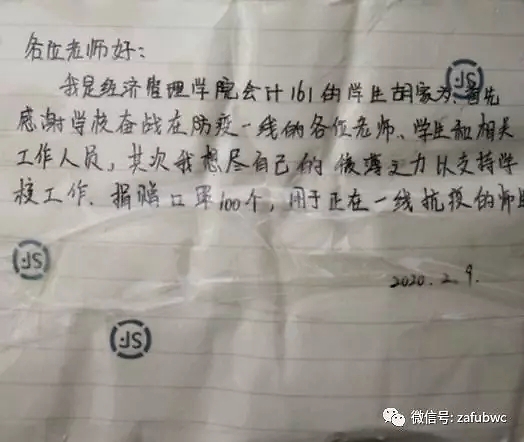 各位老师好：
我是经济管理学院会计161的学生胡家为，首先
感谢学校奋战在防疫一线的各位老师、学生和相关
工作人员，其次我想尽自己的绵薄之力以支持学
校工作．捐赠口罩100个，用于正在一线抗疫的师
2020．2．9．
JS
JS
JS
微信号: zafubwc